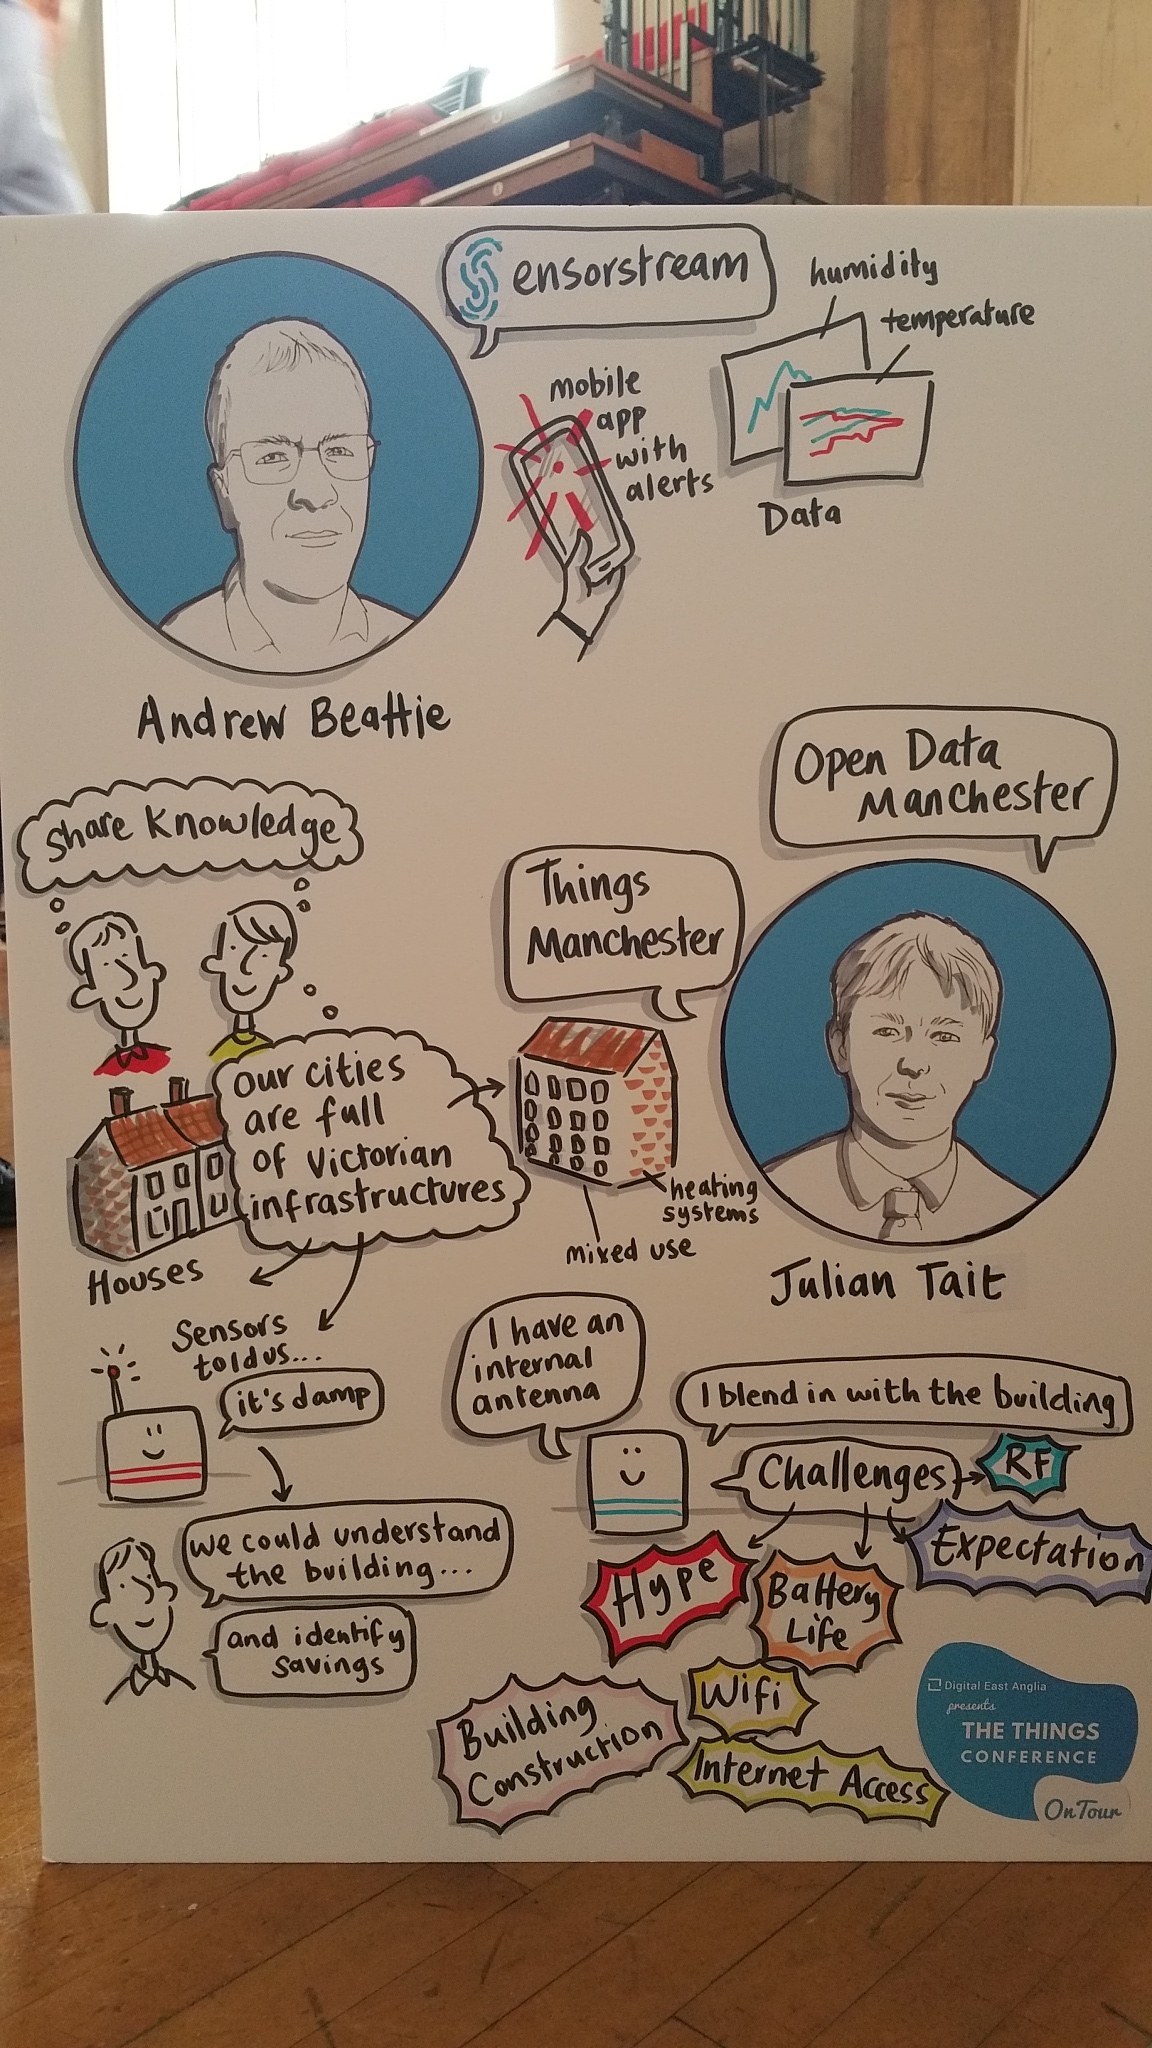 Sensorstream
humidity
temperature
mobile
app
with
alerts
Data
Andrew Beattie
Open Data
Manchester
Share Knowledge
Things
Manchester
our cities
are full
of Victorian
infrastructures
heating
systems
mixed use
Houses
Julian Tait
Sensors
told us...
it's damp
I have an
internal
antenna
I blend in with the building
Challenges
RF
Expectation
Hype
Battery
Life
we could understand
the building...
and identify
savings
Wifi
Building
Construction
Internet Access
Digital East Anglia
presents
THE THINGS
CONFERENCE
On Tour